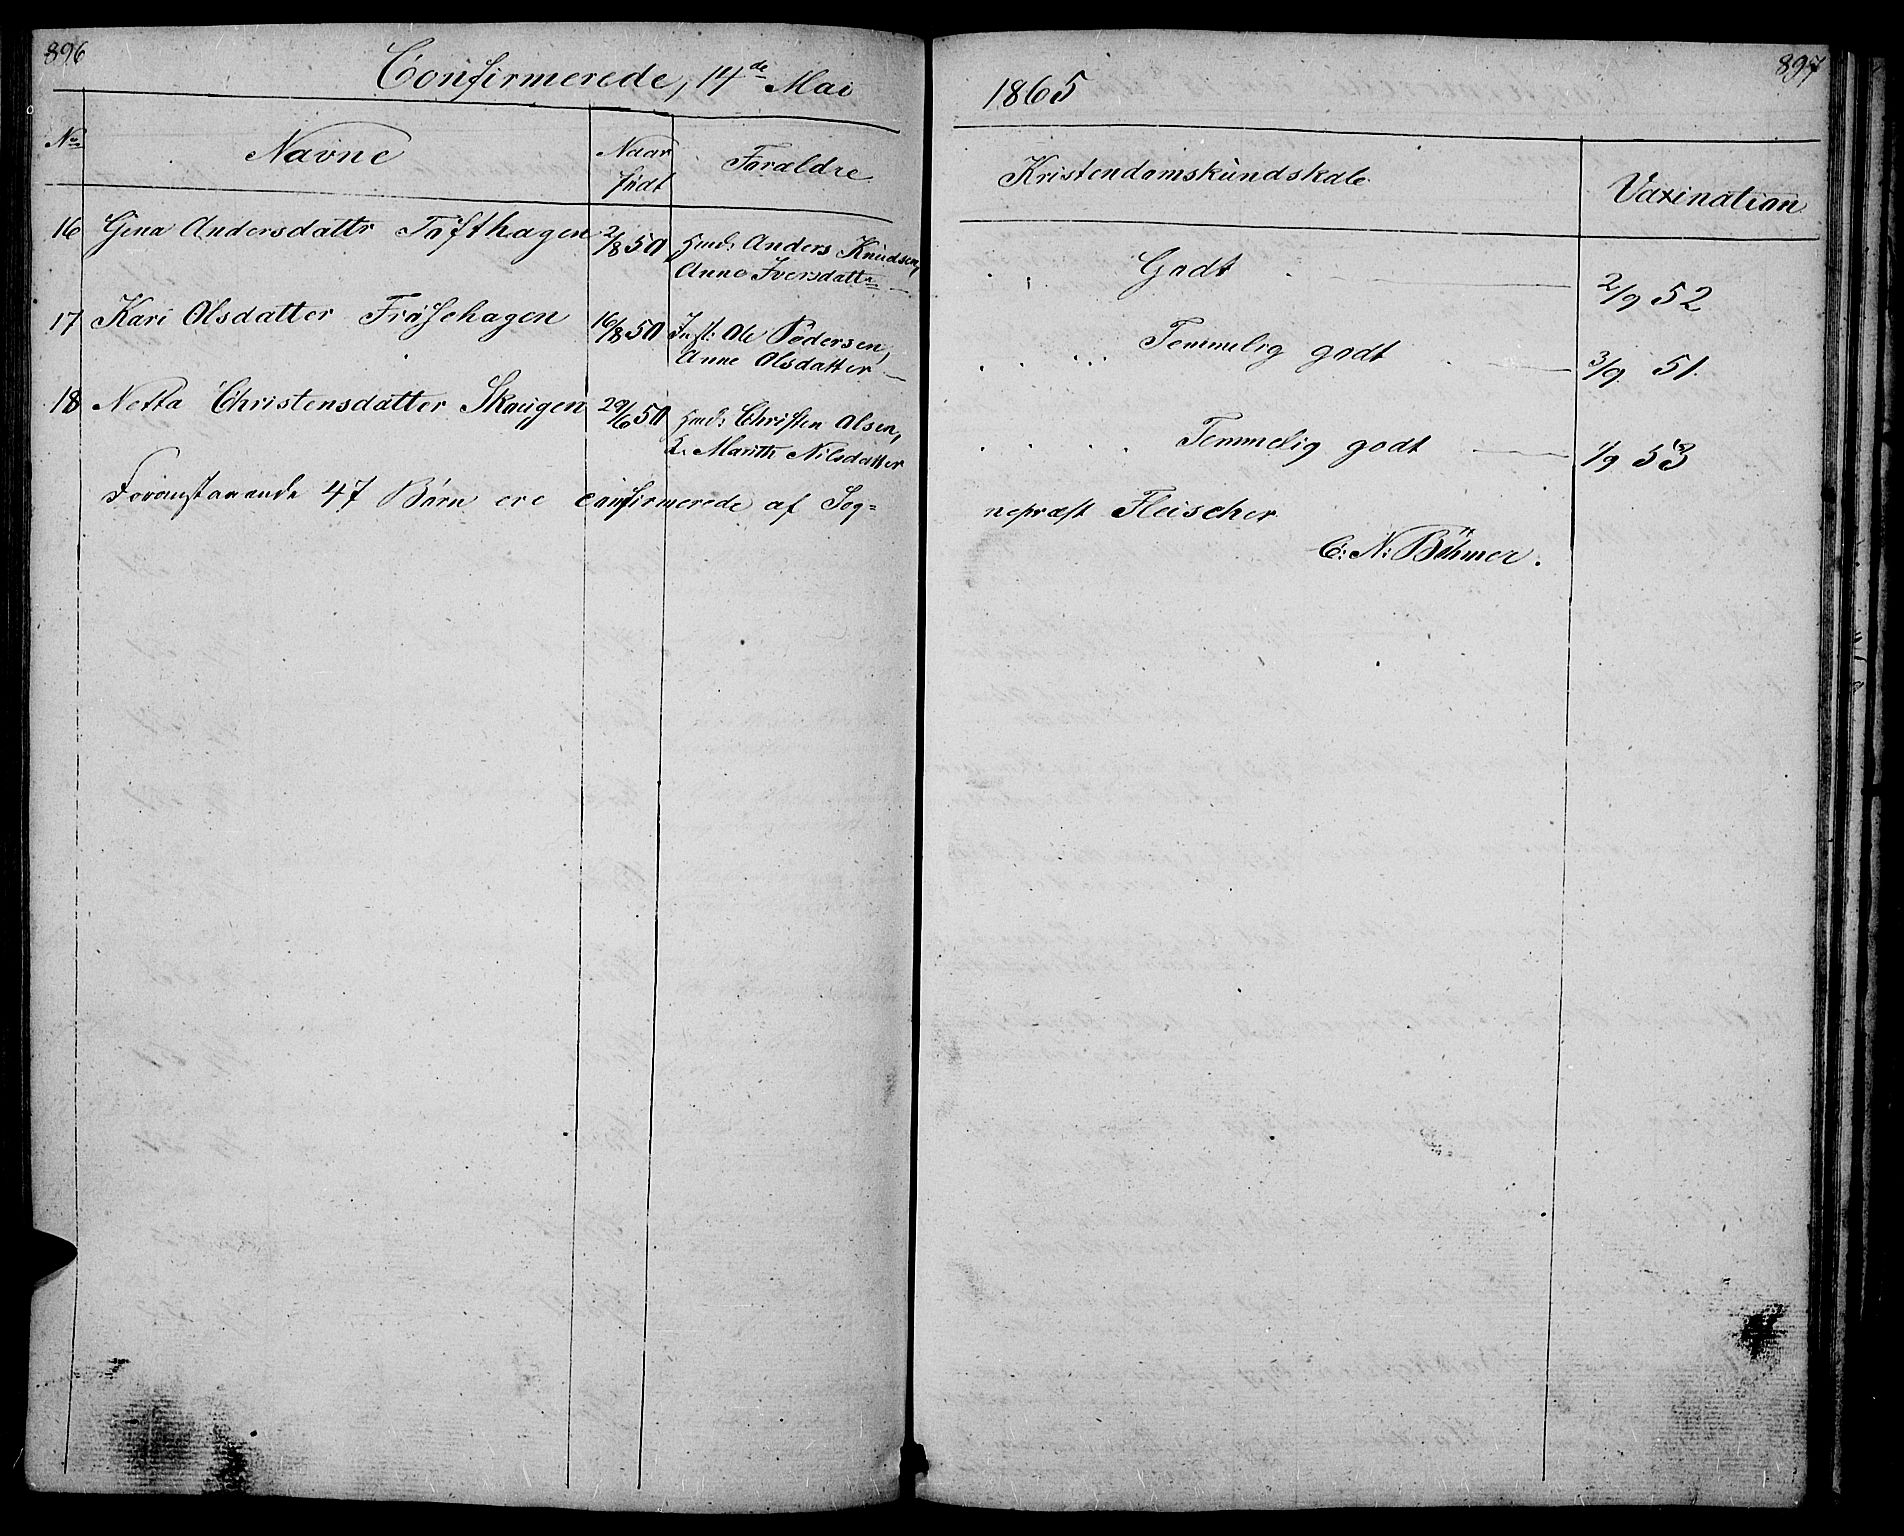 896
Confirmerede, 14de Mai
No
Navne
Naar
født
Forældre
16 Gina Andersdattr Tofthagen 2/8 50 Huusm: Anders Knudsen,
Anne Iversdattr
17 Kari Olsdatter Frösehagen 16/8 50 Inst: Ole Pedersen,
Anne Olsdatter
18 Netta Christensdatter Skougen 29/6 50 Christen Olsen,
Marith Nilsdatter
Foranstaaende 47 Børn ere confirmerede af Sog=
897
1865
Kristendomskundskab
Vaxination
Godt 2/9 52
Temmelig godt 3/9 51.
Temmelig godt 1/9 53
nepræst Fleischer
C: N: Böhmer.